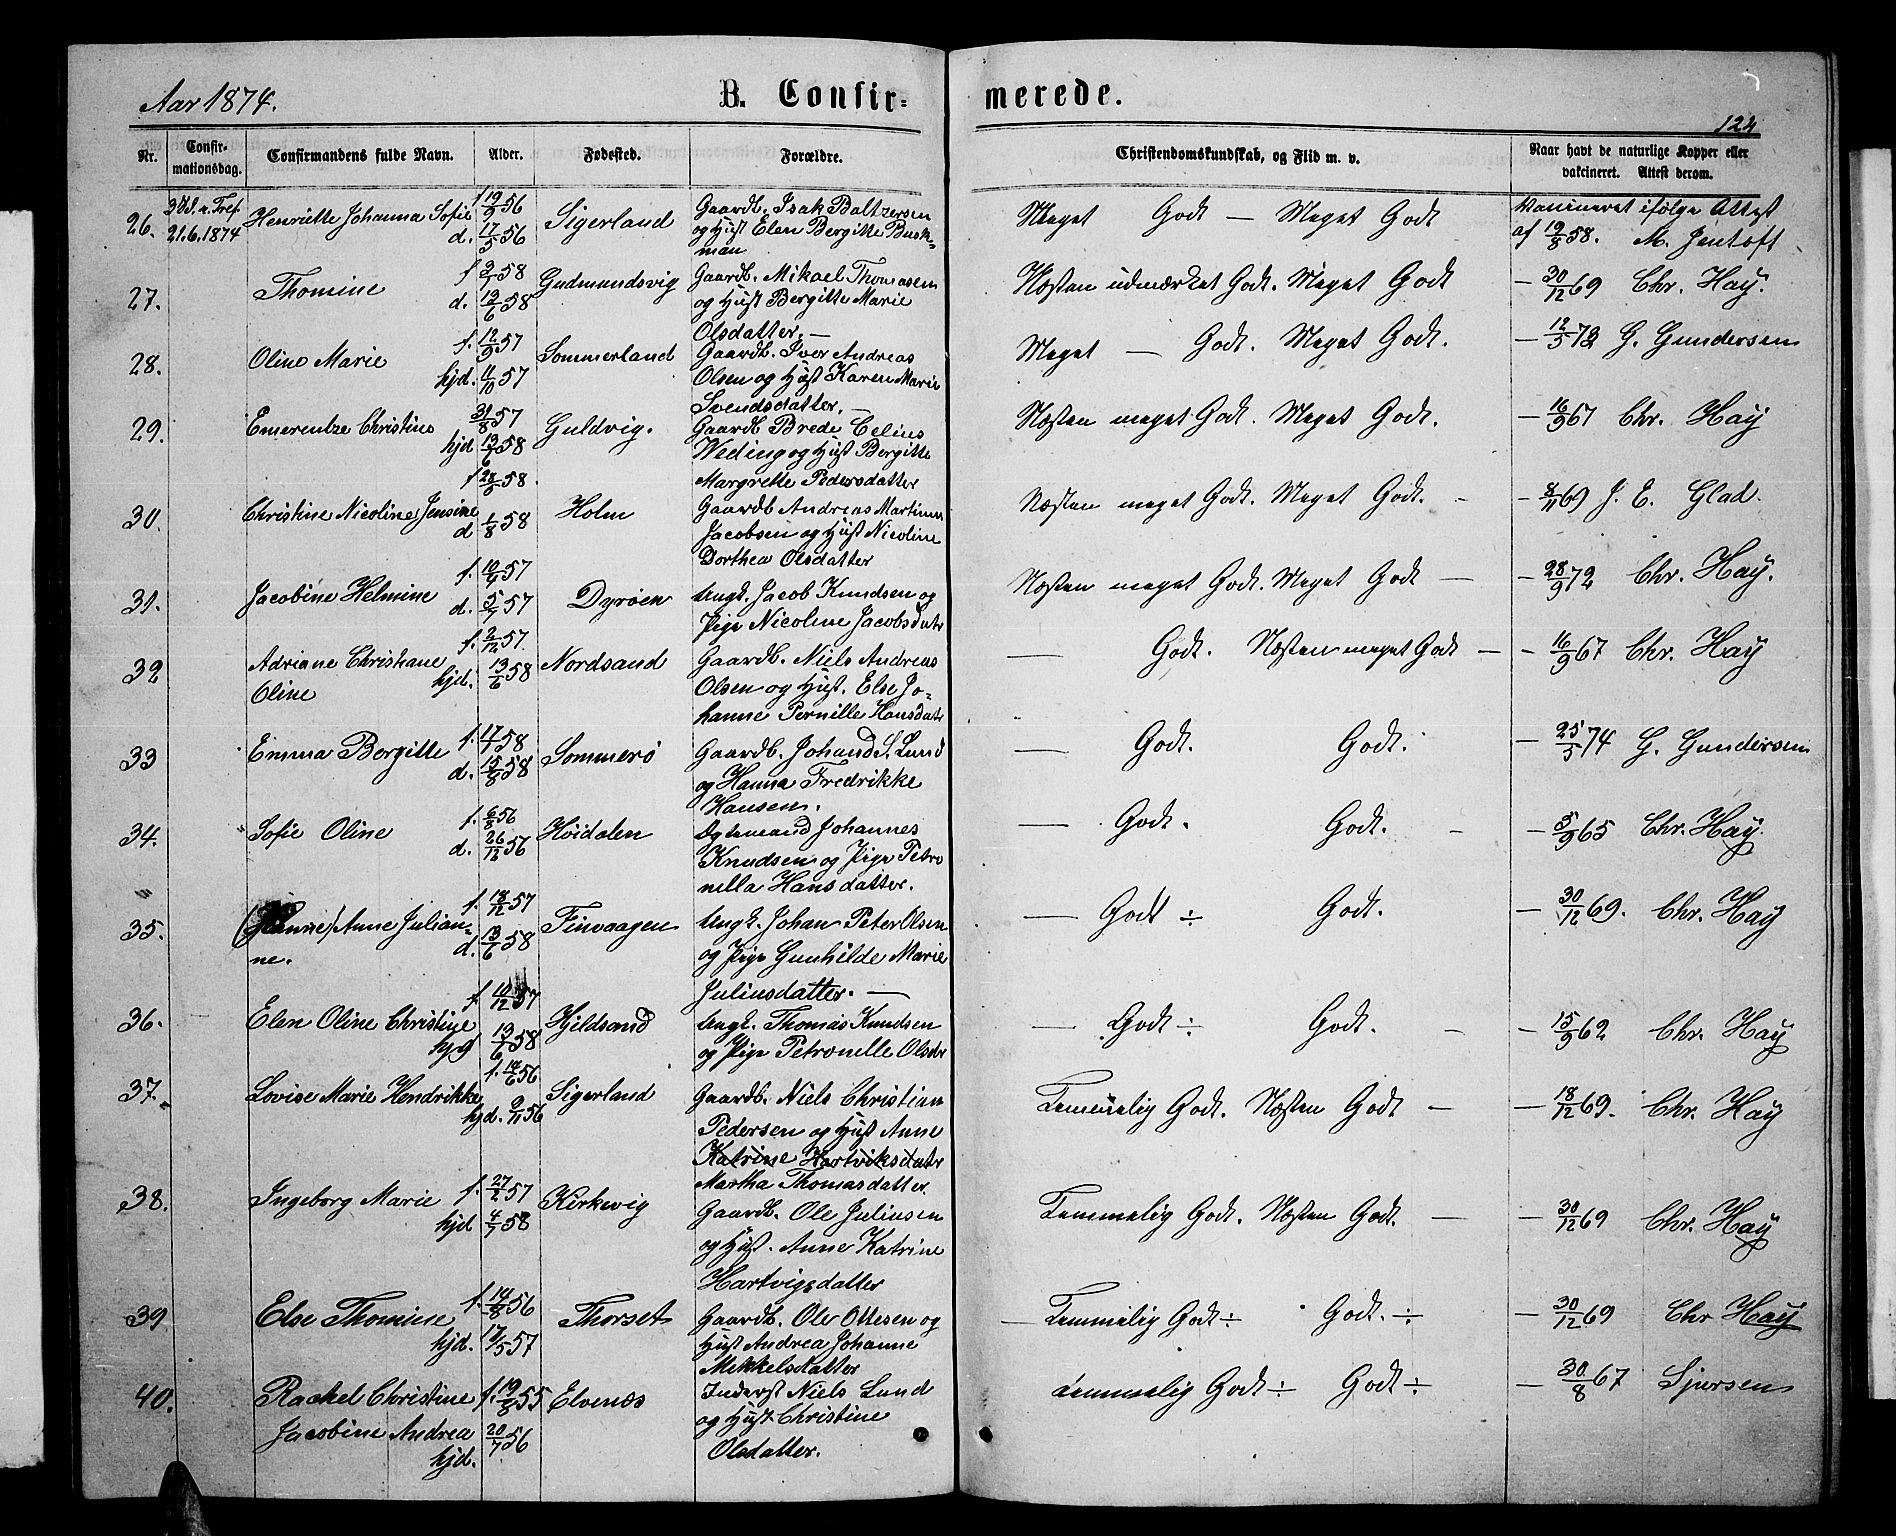 Aar 1874.
B. Confirmerede.
124
Nr.
Confirmationsdag.
Confirmandens fulde Navn.
Alder.
Fødested.
Forældre.
Christendomskundskab, og Flid m. v.
Naar havt de naturlige Kopper eller
vakcineret. Attest derom.
26. 21.6.1874 Henriette Johanna Sofie f 19/2 56 d. 17/5 56 Sigerland Gaardb. Isak Baltzersen
og Hust Elen Bergitte Busk-
man
Meget Godt — Meget Godt
Vaccineret ifølge Attest
af 19/8 58. M. Jentoft
27. Thomine d. 13/6 58 Gudmundsvig Gaardb. Mikael Thomasen
og Hust Bergitte Marie
Olsdatter. —
Næsten udmærket Godt. Meget Godt
— 30/12 69 Chr. Hay.
28. Oline Marie f. 12/9 57 hjd. 11/10 57 Sommerland Gaardb. Iver Andreas
Olsen og Hust Karen Marie
Svendsdatter. —
Meget — Godt. Meget Godt.
— 12/5 73 G. Gundersen
29. Emerentze Christine 31/8 57 hjd 13/6 58 Guldvig. Gaardb Brede Celius
Weding og Hust Bergitte
Margrette Pedersdatter
Næsten meget Godt. Meget Godt.
— 16/9 67 Chr. Hay
30. Christine Nicoline Jensine d 1/8 58 Holm Gaardb Andreas Martinus
Jacobsen og Hust Nicoline
Dorthea Olsdatter
Næsten meget Godt. Meget Godt. —
— 8/11 69 J. E. Glad.
31. Jacobine Helmine f. 10/4 57 d. 5/7 57 Dyrøen Ungk. Jacob Knudsen og
Pige Nicoline Jacobsdatr
Næsten meget Godt. Meget Godt —
— 28/9 72 Chr. Hay.
32 Adriane Christiane
Oline f. 2/12 57. hjd. 13/6 58 Nordsand Gaardb. Niels Andreas
Olsen og Hust. Else Jo-
hanne Pernille Hansdatr
— Godt. Næsten meget Godt —
— 16/9 67 Chr. Hay
33 Emma Bergitte f. 17/7 58 d. 15/8 58 Sommerø Gaardb. Johan S. Lund
og Hanna Fredrikke
Hansen.
— Godt. Godt.
— 25/5 74 G. Gundersen
34. Sofie Oline f. 6/8 56 d. 26/12 56 Høidalen Ægtemand Johannes
Knudsen og Pige Petro
nella Hansdatter.
— Godt. Godt. —
— 5/9 65 Chr. Hay.
35. Anne Julian-
ne. f. 18/12 57 d. 13/6 58 Finvaagen Ungk. Johan Peter Olsen
og Pige Gunhilde Marie
Juliusdatter. —
— Godt ÷ Godt.
— 30/12 69. Chr. Hay
36. Elen Oline Christine f 10/12 57 hjd 13/6 58 Hjeldsand Ungk. Thomas Knudsen
og Pige Petronelle Olsdr
— Godt ÷ Godt. —
— 15/9 62 Chr. Hay
37. Lovise Marie Hendrikke hjd. 9/11 56 Sigerland Gaardb. Niels Christian
Pedersen og Hust Anne
Katrine Hartviksdatr
Martha Thomasdatter
Temmelig Godt. Næsten Godt —
— 18/12 69. Chr. Hay
38. Ingeborg Marie f. 27/2 57 hjd 4/7 58 Kirkevig Gaardb. Ole Juliusen
og Hust. Anne Katrine
Hartvigsdatter
Temmelig Godt. Næsten Godt. —
— 30/12 69 Chr. Hay
39 Else Thomine f. 14/8 56 hjd. 17/5 57 Thorset Gaardb. Ole Ottesen og
Hust Andrea Johanne
Mikkelsdatter
Temmelig Godt ÷ Godt. ÷
— 30/12 69 Chr Hay
40. Rackel Christine
Jacobine Andrea f. 19/8 55 hjd. 20/7 56 Elvenæs Inderst Niels Lund
og Hust Christine
Olsdatter.
temmelig Godt ÷ Godt ÷
— 30/8 67 Sjursen